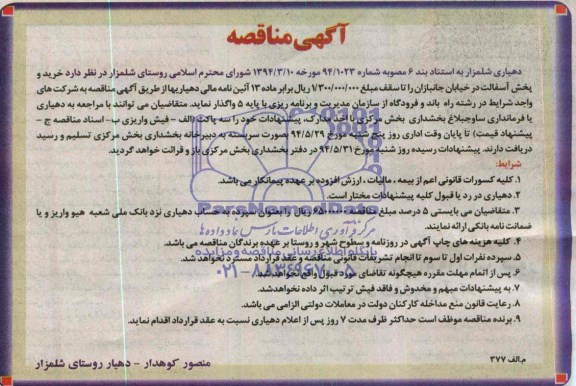 آگهی مناقصه
دهیاری شلمزار به استناد بند ۶ مصوبه شماره ۹۴/۱۰۲۳ مورخه ۱۳۹۴/۳/۱۰ شورای محترم اسلامی روستای شلمزار در نظر دارد خرید و
پخش آسفالت در خیابان جانبازان را تا سقف مبلغ ۱/۳۰۰/۰۰۰/۰۰۰ ریال برابر ماده ۱۳ آئین نامه مالی دهیاریها از طریق آگهی مناقصه به شرکت های
واجد شرایط در رشته راه باند و فرودگاه از سازمان مدیریت و برنامه ریزی با پایه ۵ واگذار نماید. متقاضیان می توانند با مراجعه به دهیاری
یا فرمانداری ساوجبلاغ بخشداری بخش مرکزی با اخذ مدارک، پیشنهادات خود را سه پاکت (الف - فیش واریزی ب- اسناد مناقصه ج -
پیشنهاد قیمت) تا پایان وقت اداری روز پنج شنبه مورخ ۹۴/۵/۲۹ بصورت سربسته به دبیرخانه بخشداری بخش مرکزی تسلیم و رسید
دریافت دارند. پیشنهادات رسیده روز شنبه مورخ ۹۴/۵/۳۱ در دفتر بخشداری بخش مرکزی باز و قرائت خواهد گردید.
شرایط:
۱. کلیه کسورات قانونی اعم از بیمه ، مالیات ، ارزش افزوده بر عهده پیمانکار می باشد.
۲. دهیاری در رد یا قبول کلیه پیشنهادات مختار است.
۳. متقاضیان می بایستی ۵ درصد مبلغ مناقصه ۶۵۰۰۰۰۰۰ ریال را بعنوان سپرده به حساب دهیاری نزد بانک ملی شعبه هیو واریز و یا
ضمانت نامه بانکی ارائه نمایند.
۴. کلیه هزینه های چاپ آگهی در روزنامه و سطوح شهر و روستا بر عهده برندگان مناقصه می باشد.
۵. سپرده نفرات اول تا سوم تا انجام تشریفات قانونی مناقصه و عقد قرارداد مسترد نخواهد شد.
۶. پس از اتمام مهلت مقرره هیچگونه تقاضای مورد قبول واقع نخواهد شد.
۷. به پیشنهادات مبهم و مخدوش و فاقد فیش ترتیب اثر داده نخواهد شد.
۸. رعایت قانون منع مداخله کارکنان دولت در معاملات دولتی الزامی می باشد.
۹. برنده مناقصه موظف است حداکثر ظرف مدت ۷ روز پس از اعلام دهیاری نسبت به عقد قرارداد اقدام نماید.
م.الف ۳۷۷
منصور کوهدار - دهیار روستای شلمزار
ParsNamadData
پایگاه اطلاع رسانی مناقصه و مزایده
۰۲۱-۸۸۳۴۹۶۷۰-۵